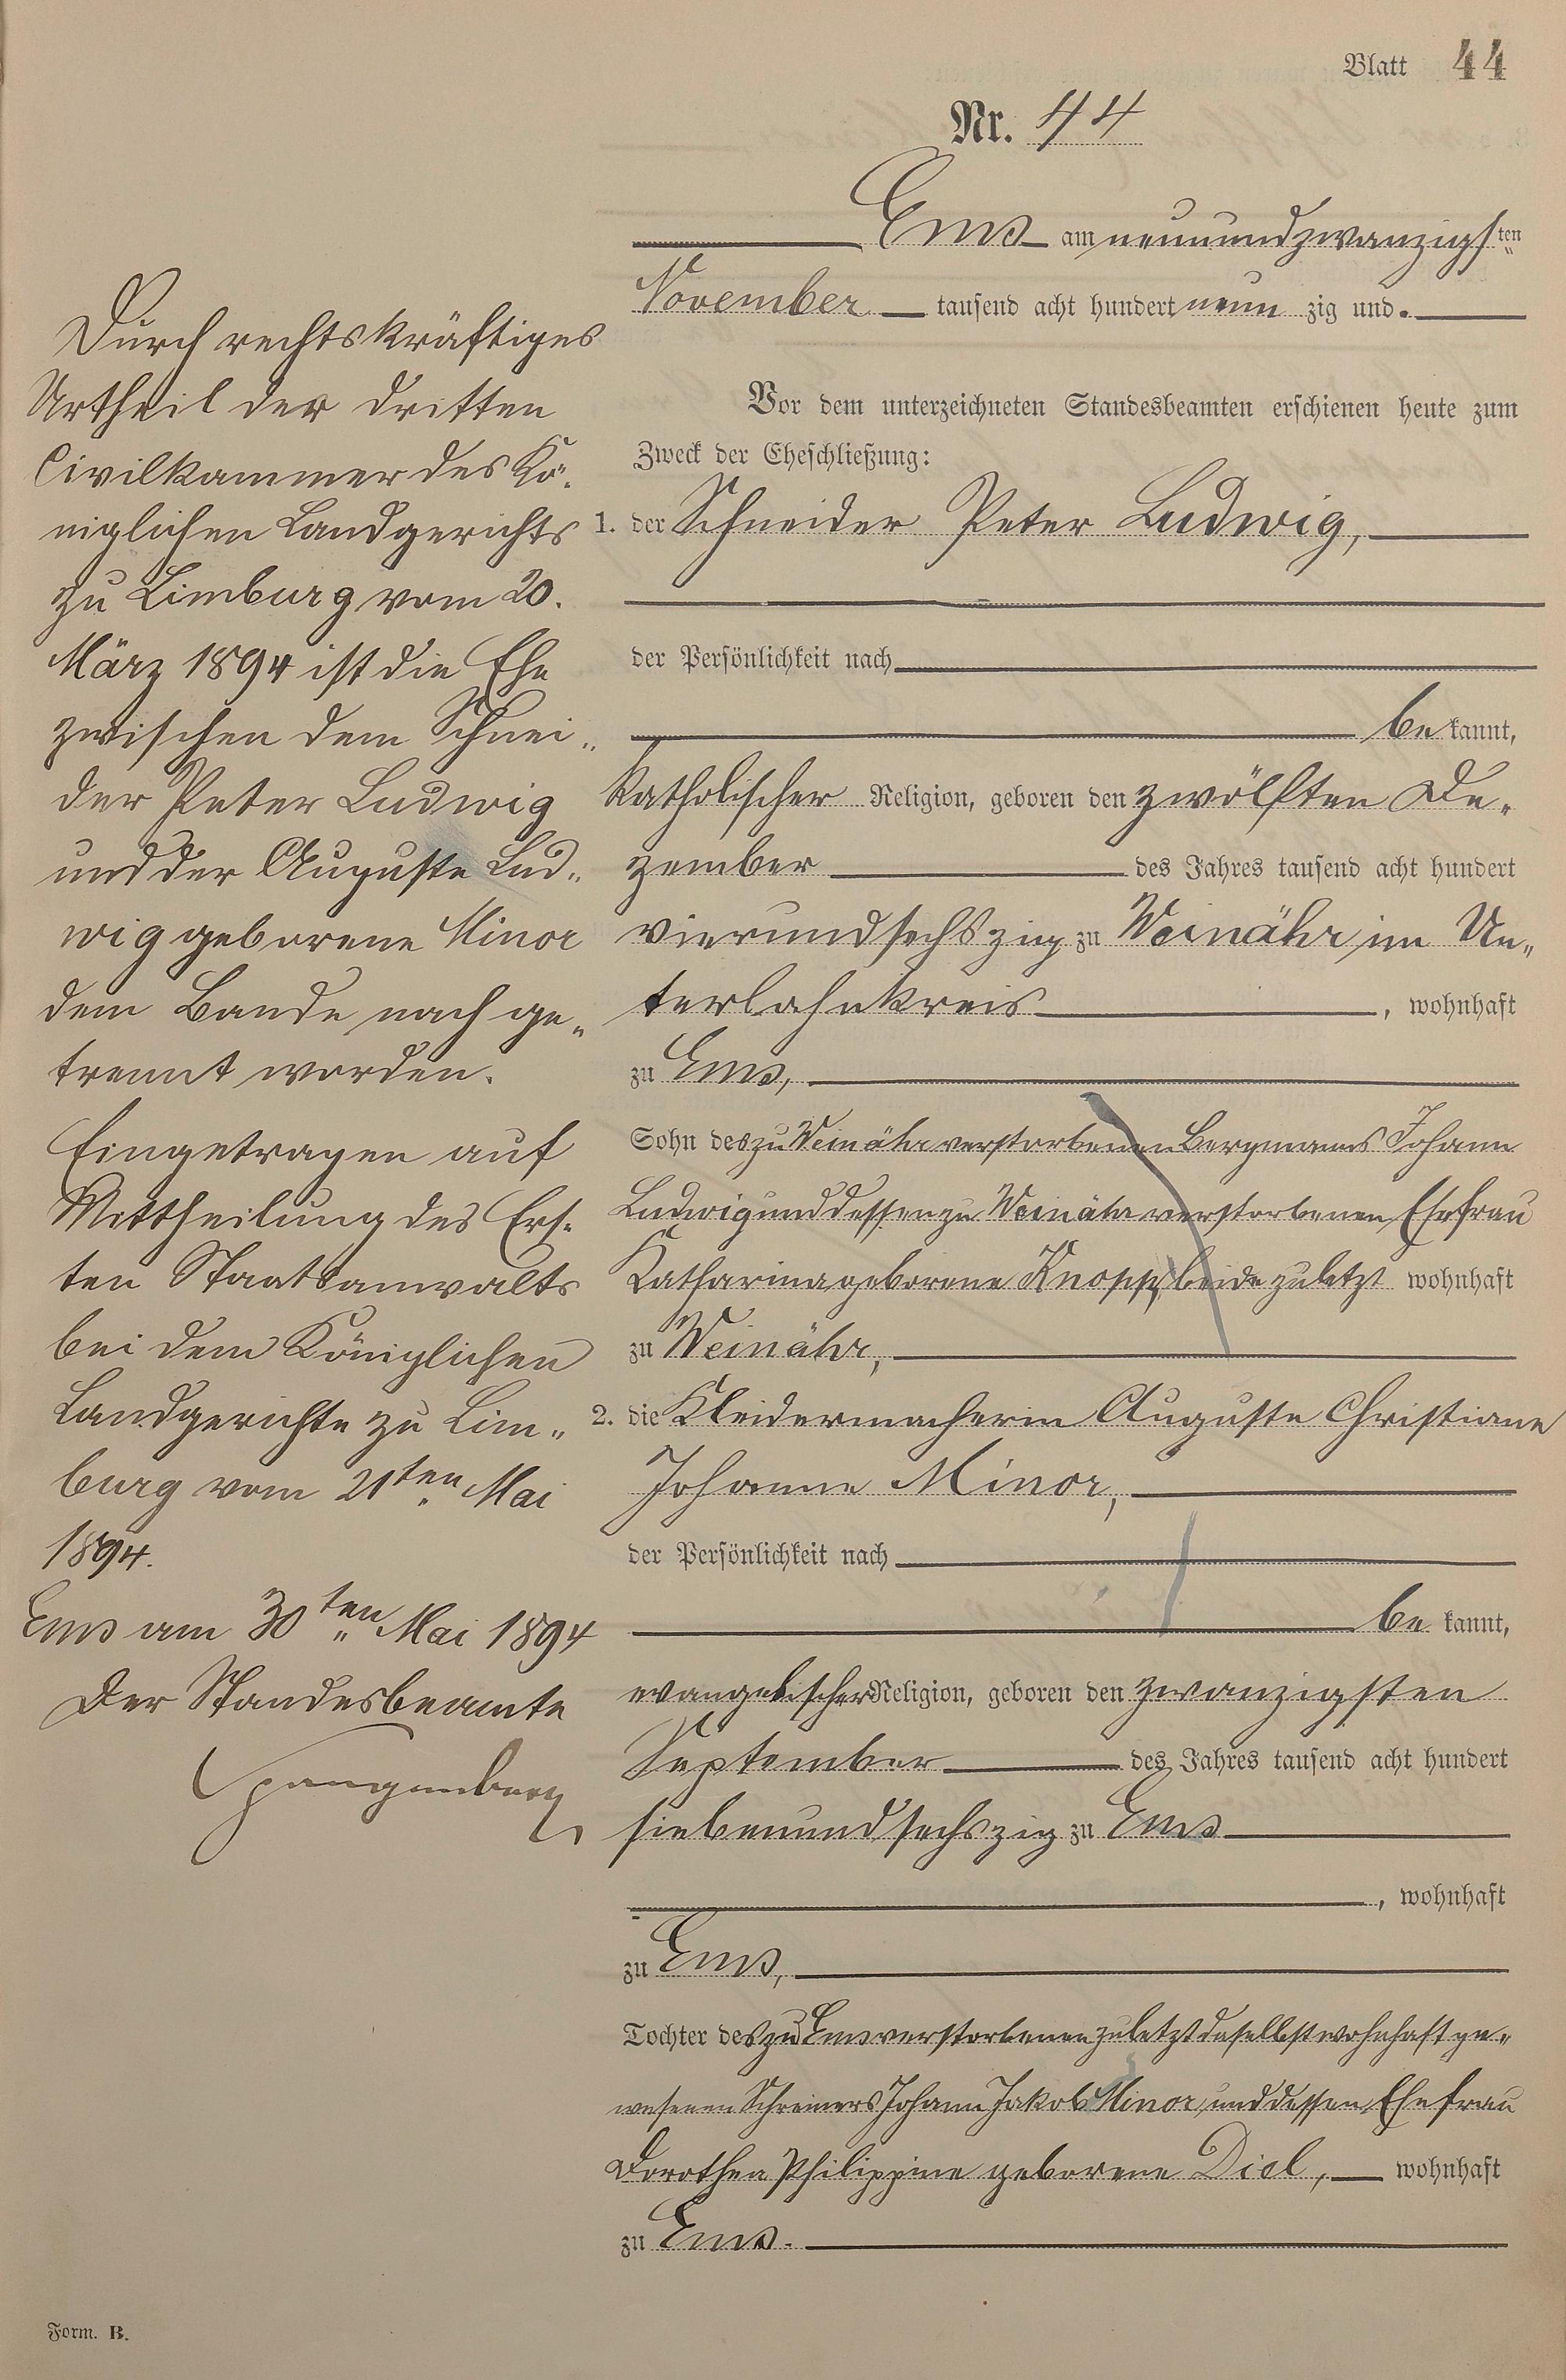 Blatt 44
Nr. 44
Ems am neunundzwanzigsten
November tausend acht hundert neun zig und
Vor dem unterzeichneten Standesbeamten erschienen heute zum
Zweck der Eheschließung:
1. der Schneider Peter Ludwig,
der Persönlichkeit nach
be kannt,
katholischer Religion, geboren den zwölften De-
zember des Jahres tausend acht hundert
vierundsechszig zu Weinähr im Un-
terlahnkreis, wohnhaft
zu Ems,
Sohn des zu Weinähr verstorbenen Bergmanns Johann
Ludwig und dessen zu Weinähr verstorbenen Ehefrau
Katharina geborene Knopp, beide zuletzt wohnhaft
zu Weinähr,
2. die Kleidermacherin Auguste Christiane
Johanne Minor,
der Persönlichkeit nach
be kannt,
evangelischer Religion, geboren den zwanzigsten
September des Jahres tausend acht hundert
siebenundsechszig zu Ems
, wohnhaft
zu Ems,
Tochter des zu Ems verstorbenen zuletzt daselbst wohnhaft ge-
wesenen Schreiners Johann Jakob Minor, und dessen Ehefrau
Dorothea Philippine geborene Diel, wohnhaft
zu Ems.
Durch rechtskräftiges
Urtheil der dritten
Civilkammer des Kö-
niglichen Landgerichts
zu Limburg vom 20.
März 1894 ist die Ehe
zwischen dem Schnei-
der Peter Ludwig
und der Auguste Lud-
wig geborene Minor
dem Bande nach ge-
trennt worden.
Eingetragen auf
Mittheilung des Ers-
ten Staatsanwalts
bei dem Königlichen
Landgerichte zu Lim-
burg vom 21ten Mai
1894.
Ems am 30ten Mai 1894
Der Standesbeamte
Spangenberg
Form. B.